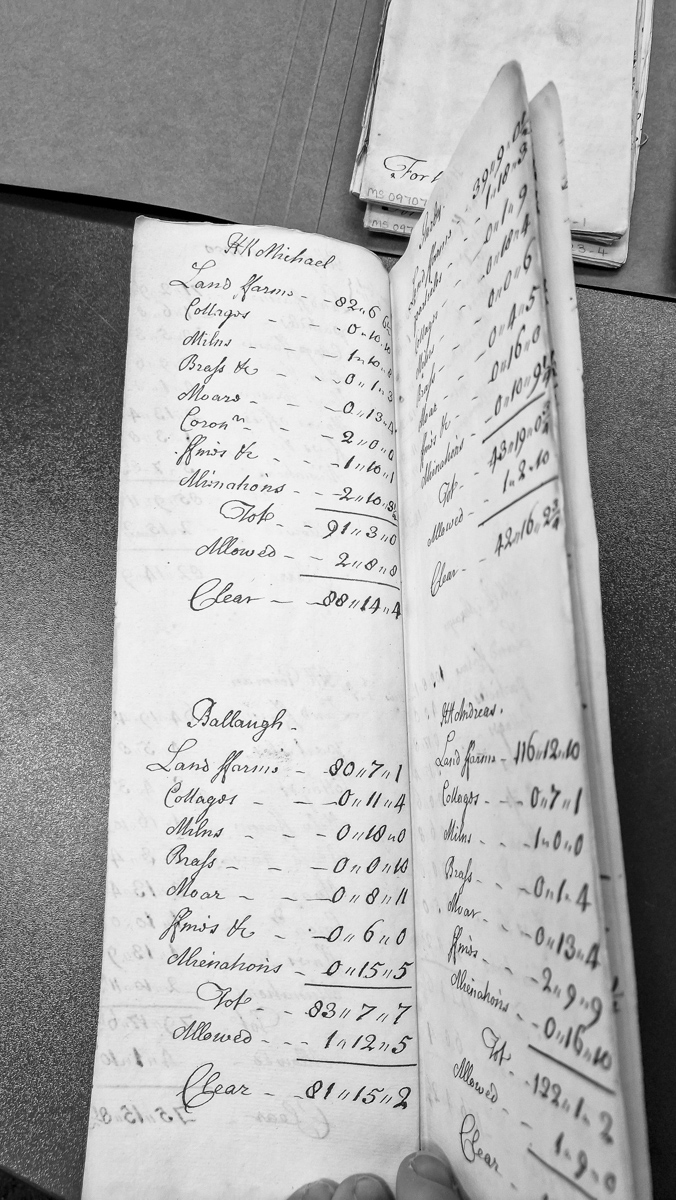 KK Michael
Land ffarms - - 82 " 6
Cottages - - - 0 " 10
Milns - - 1 " 10
Brass &c - - 0 " 1 " 3
Moars - - 0 " 13 " 0
Coron^n - - 2 " 0 " 0
ffines &c - - 1 " 10 " 1
Alienations - - 2 " 10
Tot - 91 " 3 " 0
Allowed - - 2 " 8 " 8
Clear - - 88 " 14 " 4
Ballaugh -
Land ffarms - 80 " 7 " 1
Cottages - - 0 " 11 " 4
Milns - - 0 " 18 " 0
Brass - - 0 " 0 " 10
Moar - - 0 " 8 " 11
ffines &c - 0 " 6 " 0
Alienations - 0 " 15 " 5
Tot - 83 " 7 " 7
Allowed - - - 1 " 12 " 5
Clear - - 81 " 15 " 2
39 " 9 " 0
Land ffarms 1 " 18 " 3
0 " 1 " 9
Cottages - - 0 " 18 " 4
Milns - - 0 " 0 " 6
Brass - - 0 " 4 " 5
Moar - - 0 " 16 " 0
ffines &c - - 0 " 10 " 9
Alienations
Tot - 43 " 19 " 0 3/4
Allowed - - 1 " 2 " 10
Clear - - 42 " 16 " 2 3/4
KK Andreas.
Land ffarms - 116 " 12 " 10
Cottages - - 0 " 7 " 1
Milns - - 1 " 0 " 0
Brass - - 0 " 1 " 4
Moar - - 0 " 13 " 4
ffines - - 2 " 9 " 9
Alienations - 0 " 16 " 10
Tot - 122 " 1 " 2
Allowed - - 1 " 9 " 0
Clear
For
MS 09707
MS 097
3-4